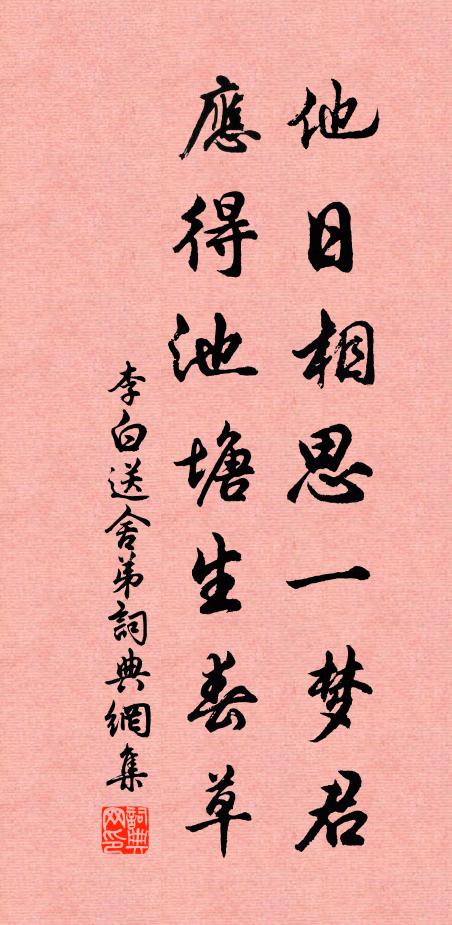 他日相思一梦君
應得池塘生春草
李白送舍弟詞典網集
詞典
网印